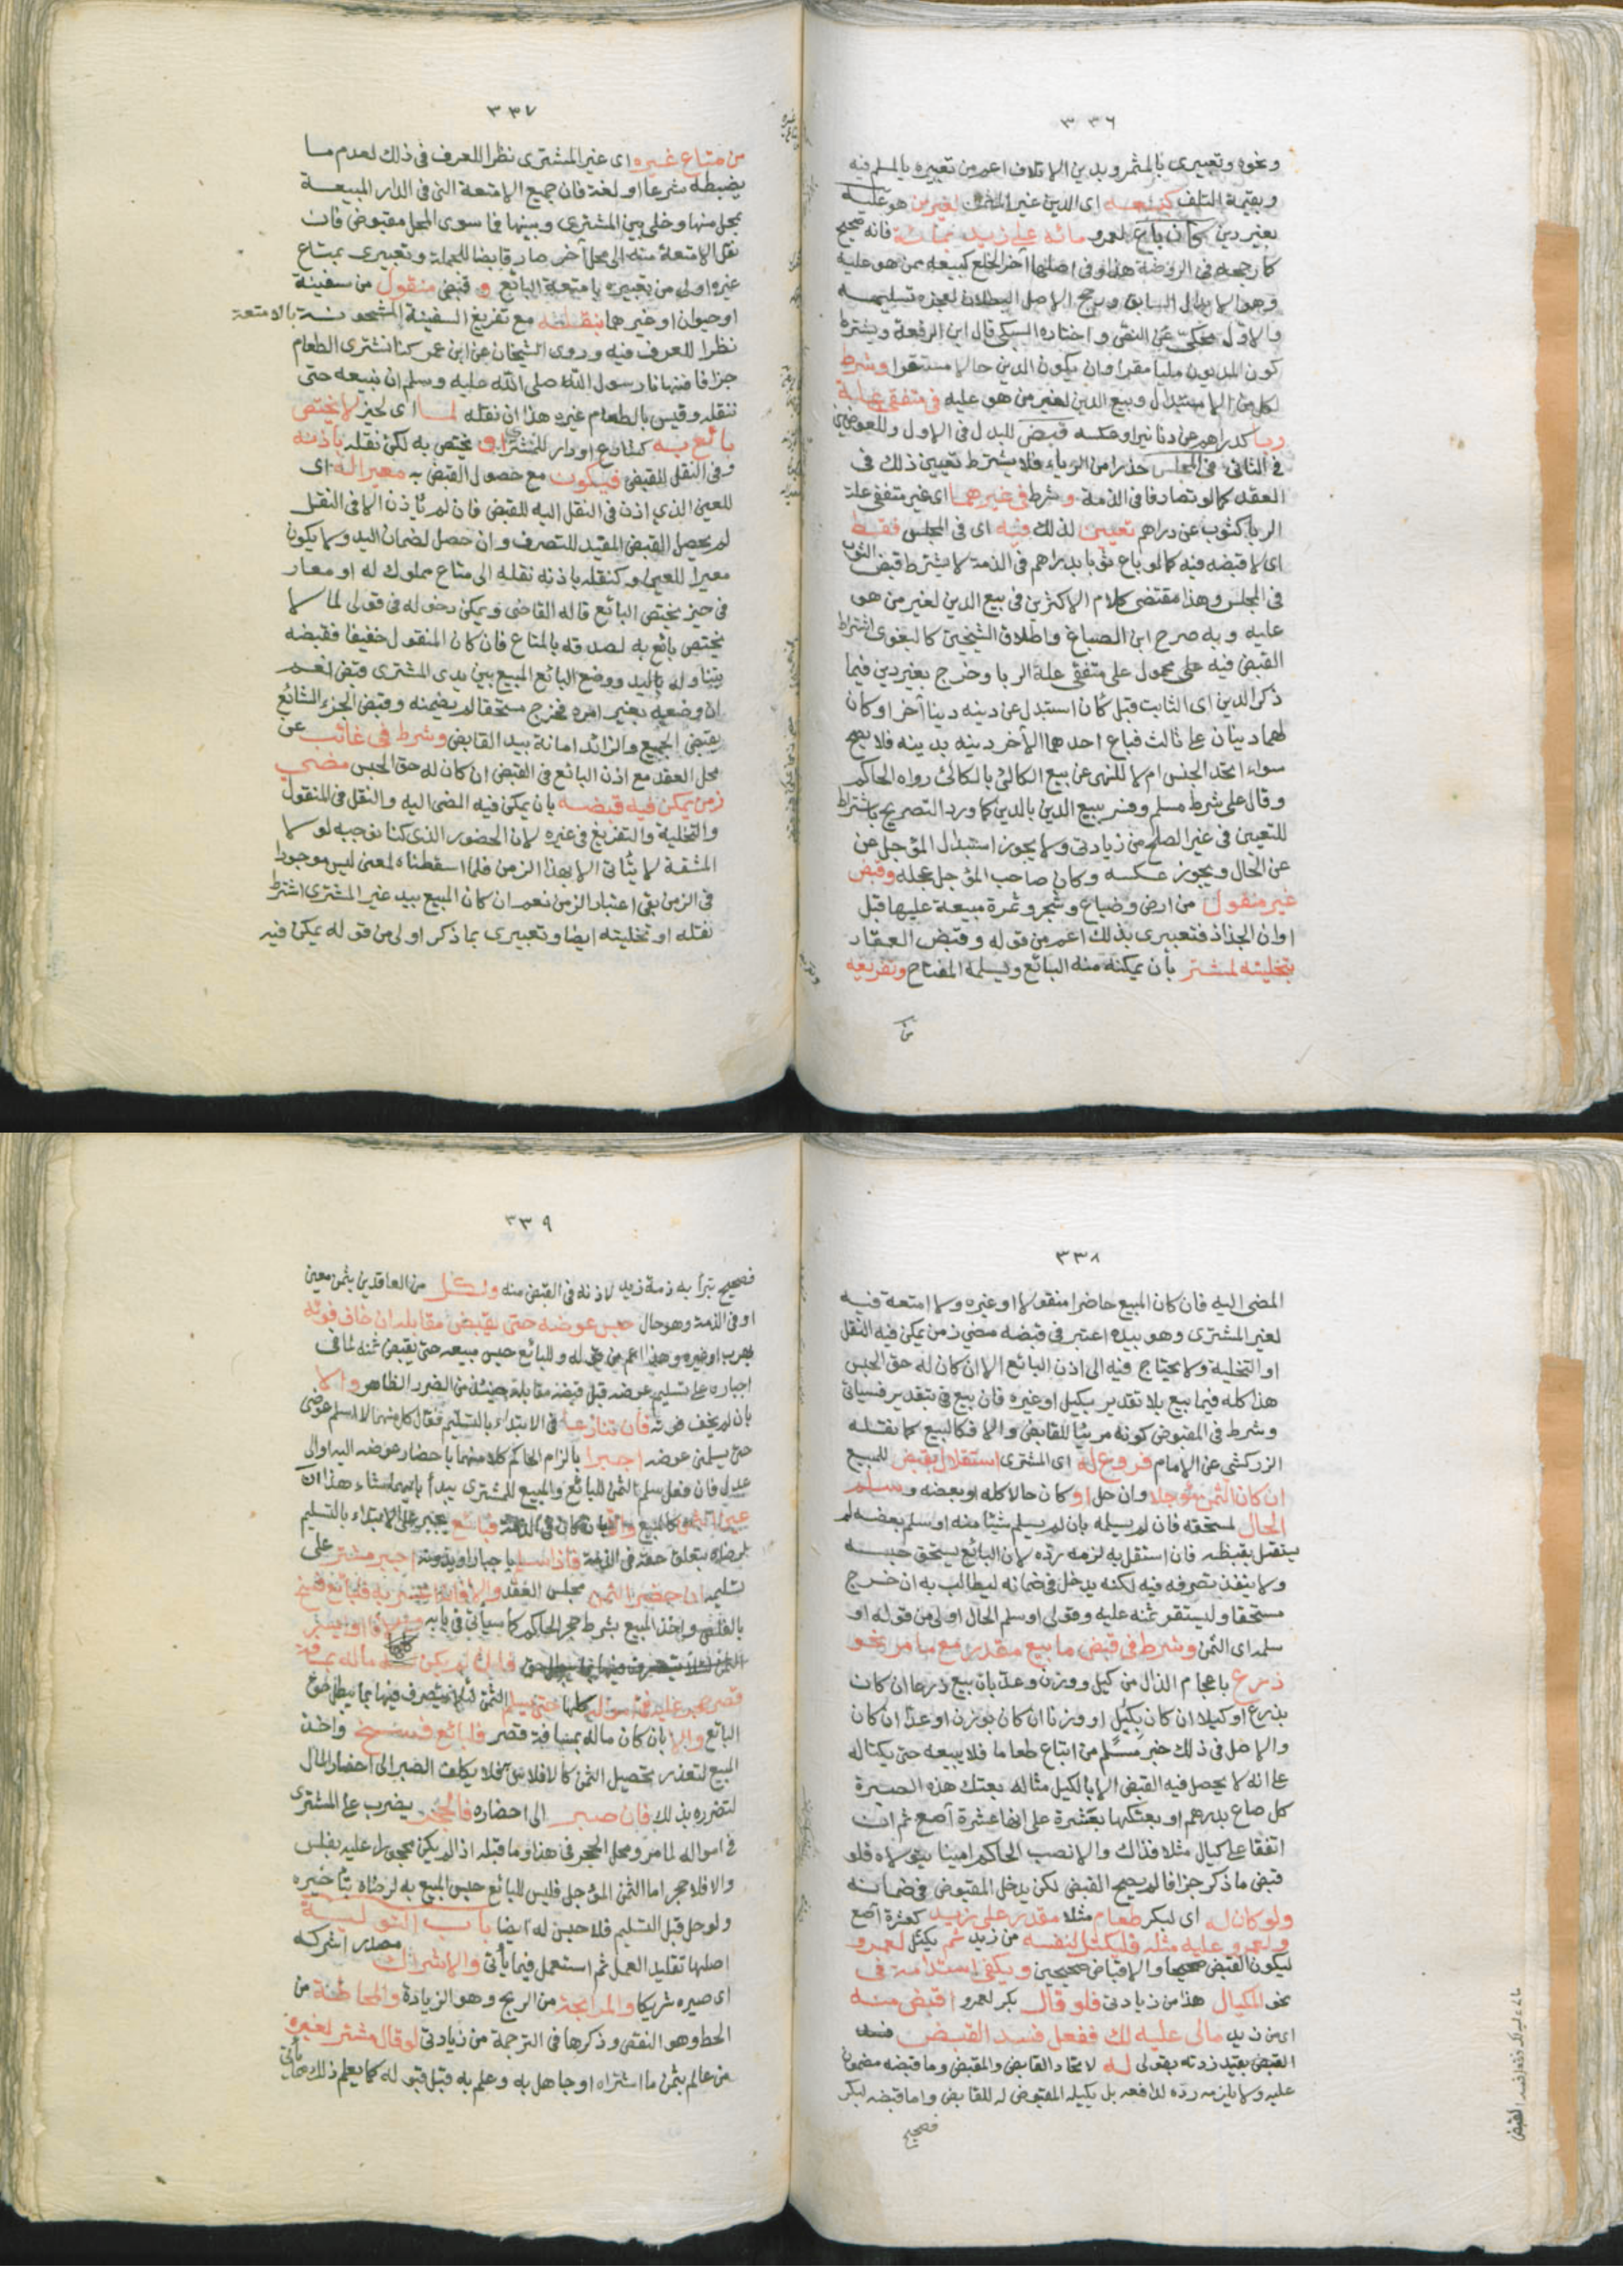 ٣٣٦
ونحوه وتعبيرى بالمثمن وبدين الاتلاف اعم من تعبيره بالمسلم فيه
وبقيمة المتلف كبيعه اى الدين غير المثمن لغير من هو عليه
بغير دين كأن باع لعمرو مائة له على زيد بمائة فانه صحيح
كما رجحه فى الروضة هنا وفى اصلها آخر الخلع كبيعه ممن هو عليه
وهو الاستبدال السابق ورجح الاصل البطلان لعجزه تسليمه
والاول محكى عن النص واختاره السبكى قال ابن الرفعة ويشترط
كون المديون مليا مقرا وان يكون الدين حالا مستقرا وشرط
لكل من الاستبدال وبيع الدين لغير من هو عليه فى متفقى علة
ربا كدراهم عن دنانير او عكسه قبض للبدل فى الاول وللعوضين
فى الثانى فى المجلس حذرا من الرباء فلا يشترط تعيين ذلك فى
العقد كما لو تصارفا فى الذمة وشرط فى غيرهما اى غير متفقى علة
الربا كثوب عن دراهم تعيين لذلك فيه اى فى المجلس فقط
اى لا قبضه فيه كما لو باع ثوبا بدراهم فى الذمة لا يشترط قبض الثوب
فى المجلس وهذا مقتضى كلام الاكثرين فى بيع الدين لغير من هو
عليه وبه صرح ابن الصباغ واطلاق الشيخين كالبغوى اشتراط
القبض فيه على محمول على متفقى علة الربا وخرج بغير دين فيما
ذكر الدين اى الثابت قبل كأن استبدل عن دينه دينا آخر او كان
لهما دينان على ثالث فباع احدهما الآخر دينه بدينه فلا يصح
سواء اتحد الجنس ام لا للنهى عن بيع الكالئ بالكالئ رواه الحاكم
وقال على شرط مسلم وفسر ببيع الدين بالدين كما ورد التصريح باشتراط
للتعيين فى غير الصلح من زيادتى ولا يجوز استبدال المؤجل عن
عن الحال ويجوز عكسه وكان صاحب المؤجل عجله وقبض
غير منقول من ارض وضياع وشجر وثمرة مبيعة عليها قبل
اوان الجذاذ فتعبيرى بذلك اعم من قوله وقبض العقار
بتخليته لمشتر بأن يمكنه منه البائع ويسلمه المفتاح وتفريغه
من
٣٣٧
من متاع غيره اى غير المشترى نظرا للعرف فى ذلك لعدم ما
يضبطه شرعا او لغة فان جميع الامتعة التى فى الدار المبيعة
بمحل منها وخلى بين المشترى وبينها فما سوى المحل مقبوض فان
نقل الامتعة منه الى محل آخر صار قابضا للجملة وتعبيرى بمتاع
غيره اولى من تعبيره بامتعة البائع و قبض منقول من سفينة
او حيوان او غيرهما بنقله مع تفريغ السفينة المشحونة بالامتعة
نظرا للعرف فيه وروى الشيخان عن ابن عمر كنا نشترى الطعام
جزافا فنهانا رسول الله صلى الله عليه وسلم ان نبيعه حتى
ننقله وقيس بالطعام غيره هذا ان نقله لما اى لحيز لا يختص
بائع به كشارع او دار للمشترى او يختص به لكن نقله باذنه
وفى النقل للقبض فيكون مع حصول القبض به معيرا له اى
للعين الذي اذن فى النقل اليه للقبض فان لم يأذن الا فى النقل
لم يحصل القبض المفيد للتصرف وان حصل لضمان اليد ولا يكون
معيرا للعين وكنقله باذنه نقله الى متاع مملوك له او معار
فى حيز يختص البائع قاله القاضى ويمكن دخوله فى قولى لما لا
يختص بائع به لصدقه بالمتاع فان كان المنقول خفيفا فقبضه
بتناوله باليد ووضع البائع المبيع بين يدى المشترى قبض نعم
ان وضعه بغير امره فخرج مستحقا لم يضمنه وقبض الجزء الشائع
بقبض الجميع والزائد امانة بيد القابض وشرط فى غائب عن
محل العقد مع اذن البائع فى القبض ان كان له حق الحبس مضي
زمن يمكن فيه قبضه بان يمكن فيه المضى اليه والنقل فى المنقول
والتخلية والتفريغ فى غيره لان الحضور الذى كنا نوجبه لولا
المشقة لا يتأتى الا بهذا الزمن فلما اسقطناه لمعنى ليس موجودا
فى الزمن بقى اعتبار الزمن نعم ان كان المبيع بيد غير المشترى اشترط
نقله او تخليته ايضا وتعبيرى بما ذكر اولى من قوله يمكن فيه
٣٣٨
المضى اليه فان كان المبيع حاضرا منقولا او غيره ولا امتعة فيه
لغير المشترى وهو بيده اعتبر فى قبضه مضي زمن يمكن فيه النقل
او التخلية ولا يحتاج فيه الى اذن البائع الا ان كان له حق الحبس
هذا كله فيما بيع بلا تقدير بكيل او غيره فان بيع فى بتقدير فسيأتى
وشرط فى المقبوض كونه مرئيا للقابض والا فكالبيع كما نقله
الزركشى عن الامام فروع له اى المشترى استقلال بقبض للمبيع
ان كان الثمن مؤجلا وان حل او كان حالا كله او بعضه وسلم
الحال لمستحقه فان لم يسلمه بان لم يسلم شيئا منه او سلم بعضه لم
يستقل بقبضه فان استقل به لزمه رده لان البائع يستحق حبسه
ولا ينفذ تصرفه فيه لكنه يدخل فى ضمانه ليطالب به ان خرج
مستحقا وليستقر ثمنه عليه وقولى او سلم الحال اولى من قوله او
سلمه اى الثمن وشرط فى قبض ما بيع مقدرا مع ما مر نحو
ذرع باعجام الذال من كيل ووزن وعد بان بيع ذرعا ان كان
بذرع او كيلا ان كان بكيل او وزنا ان كان بوزن او عدا ان كان
والاصل فى ذلك خبر مسلم من ابتاع طعاما فلا يبيعه حتى يكتاله
على انه لا يحصل فيه القبض الا بالكيل مثاله بعتك هذه الصبرة
كل صاع بدرهم او بعتكها بعشرة على انها عشرة آصع ثم ان
اتفقا على كيال مثلا فذاك والا نصب الحاكم امينا يتولاه فلو
قبض ما ذكر جزافا لم يصح القبض لكن يدخل المقبوض فى ضمانه
ولو كان له اى لبكر طعام مثلا مقدر على زيد كعشرة آصع
ولعمرو عليه مثله فليكتل لنفسه من زيد ثم يكتل لعمرو
ليكون القبض صحيحا والاقباض صحيحين ويكفى استدامة فى
نحو المكيال هذا من زيادتى فلو قال بكر لعمرو اقبض منه
اى من زيد مالى عليه لك ففعل فسد القبض
القبض بقيد زدته بقولى له لاتحاد القابض والمقبض وما قبضه مضمون
عليه ولا يلزمه رده لدافعه بل يكيله المقبوض له للقابض واما قبضه لبكر
فصحيح
٣٣٩
فصحيح تبرأ به ذمة زيد لاذنه فى القبض منه ولكل من العاقدين بثمن معين
او فى الذمة وهو حال حبس عوضه حتى يقبض مقابله ان خاف فوته
بهرب او غيره وهذا اعم من قوله وللبائع حبس مبيعه حتى يقبض ثمنه لما فى
اجباره على تسليم عوضه قبل قبضه مقابله حينئذ من الضرر الظاهر والا
بان لم يخف فوته فان تنازعا فى الابتداء بالتسليم فقال كل منهما لا اسلم عوضى
حتى يسلمنى عوضه اجبرا بالزام الحاكم كلا منهما باحضار عوضه اليه او الى
عدل فان فعل سلم الثمن للبائع والمبيع للمشترى يبدأ بايهما شاء هذا ان
عين الثمن كالمبيع والا بان كان فى الذمة فبائع يجبر على الابتداء بالتسليم
لرضاه بتعلق حقه فى الذمة فاذا سلم باجبار او بدونه اجبر مشتر على
تسليمه ان حضر الثمن مجلس العقد والا فان اعسر به فلبائع فسخ
بالفلس واخذ المبيع بشرط حجر الحاكم كما سيأتى فى بابه
فان لم يكن ماله بمسافة
قصر حجر عليه فى امواله كلها حتى يسلم الثمن لئلا يتصرف فيها بما يبطل حق
البائع والا بان كان ماله بمسافة قصر فلبائع فسخ واخذ
المبيع لتعذر تحصيل الثمن كالافلاس به فلا يكلف الصبر الى احضار المال
لتضرره بذلك فان صبر الى احضاره فالحجر يضرب على المشترى
فى امواله لما مر ومحل الحجر فى هذا وما قبله اذا لم يكن محجورا عليه بفلس
والا فلا حجر اما الثمن المؤجل فليس للبائع حبس المبيع به لرضاه بتأخيره
ولو حل قبل التسليم فلا حبس له ايضا باب التولية
اصلها تقليد العمل ثم استعمل فيما يأتى والاشراك مصدر اشركه
اى صيره شريكا والمرابحة من الربح وهو الزيادة والمحاطة من
الحط وهو النقص وذكرها فى الترجمة من زيادتى لو قال مشتر لغيره
من عالم بثمن ما اشتراه او جاهل به وعلم به قبل قبوله كما يعلم ذلك مما يأتى